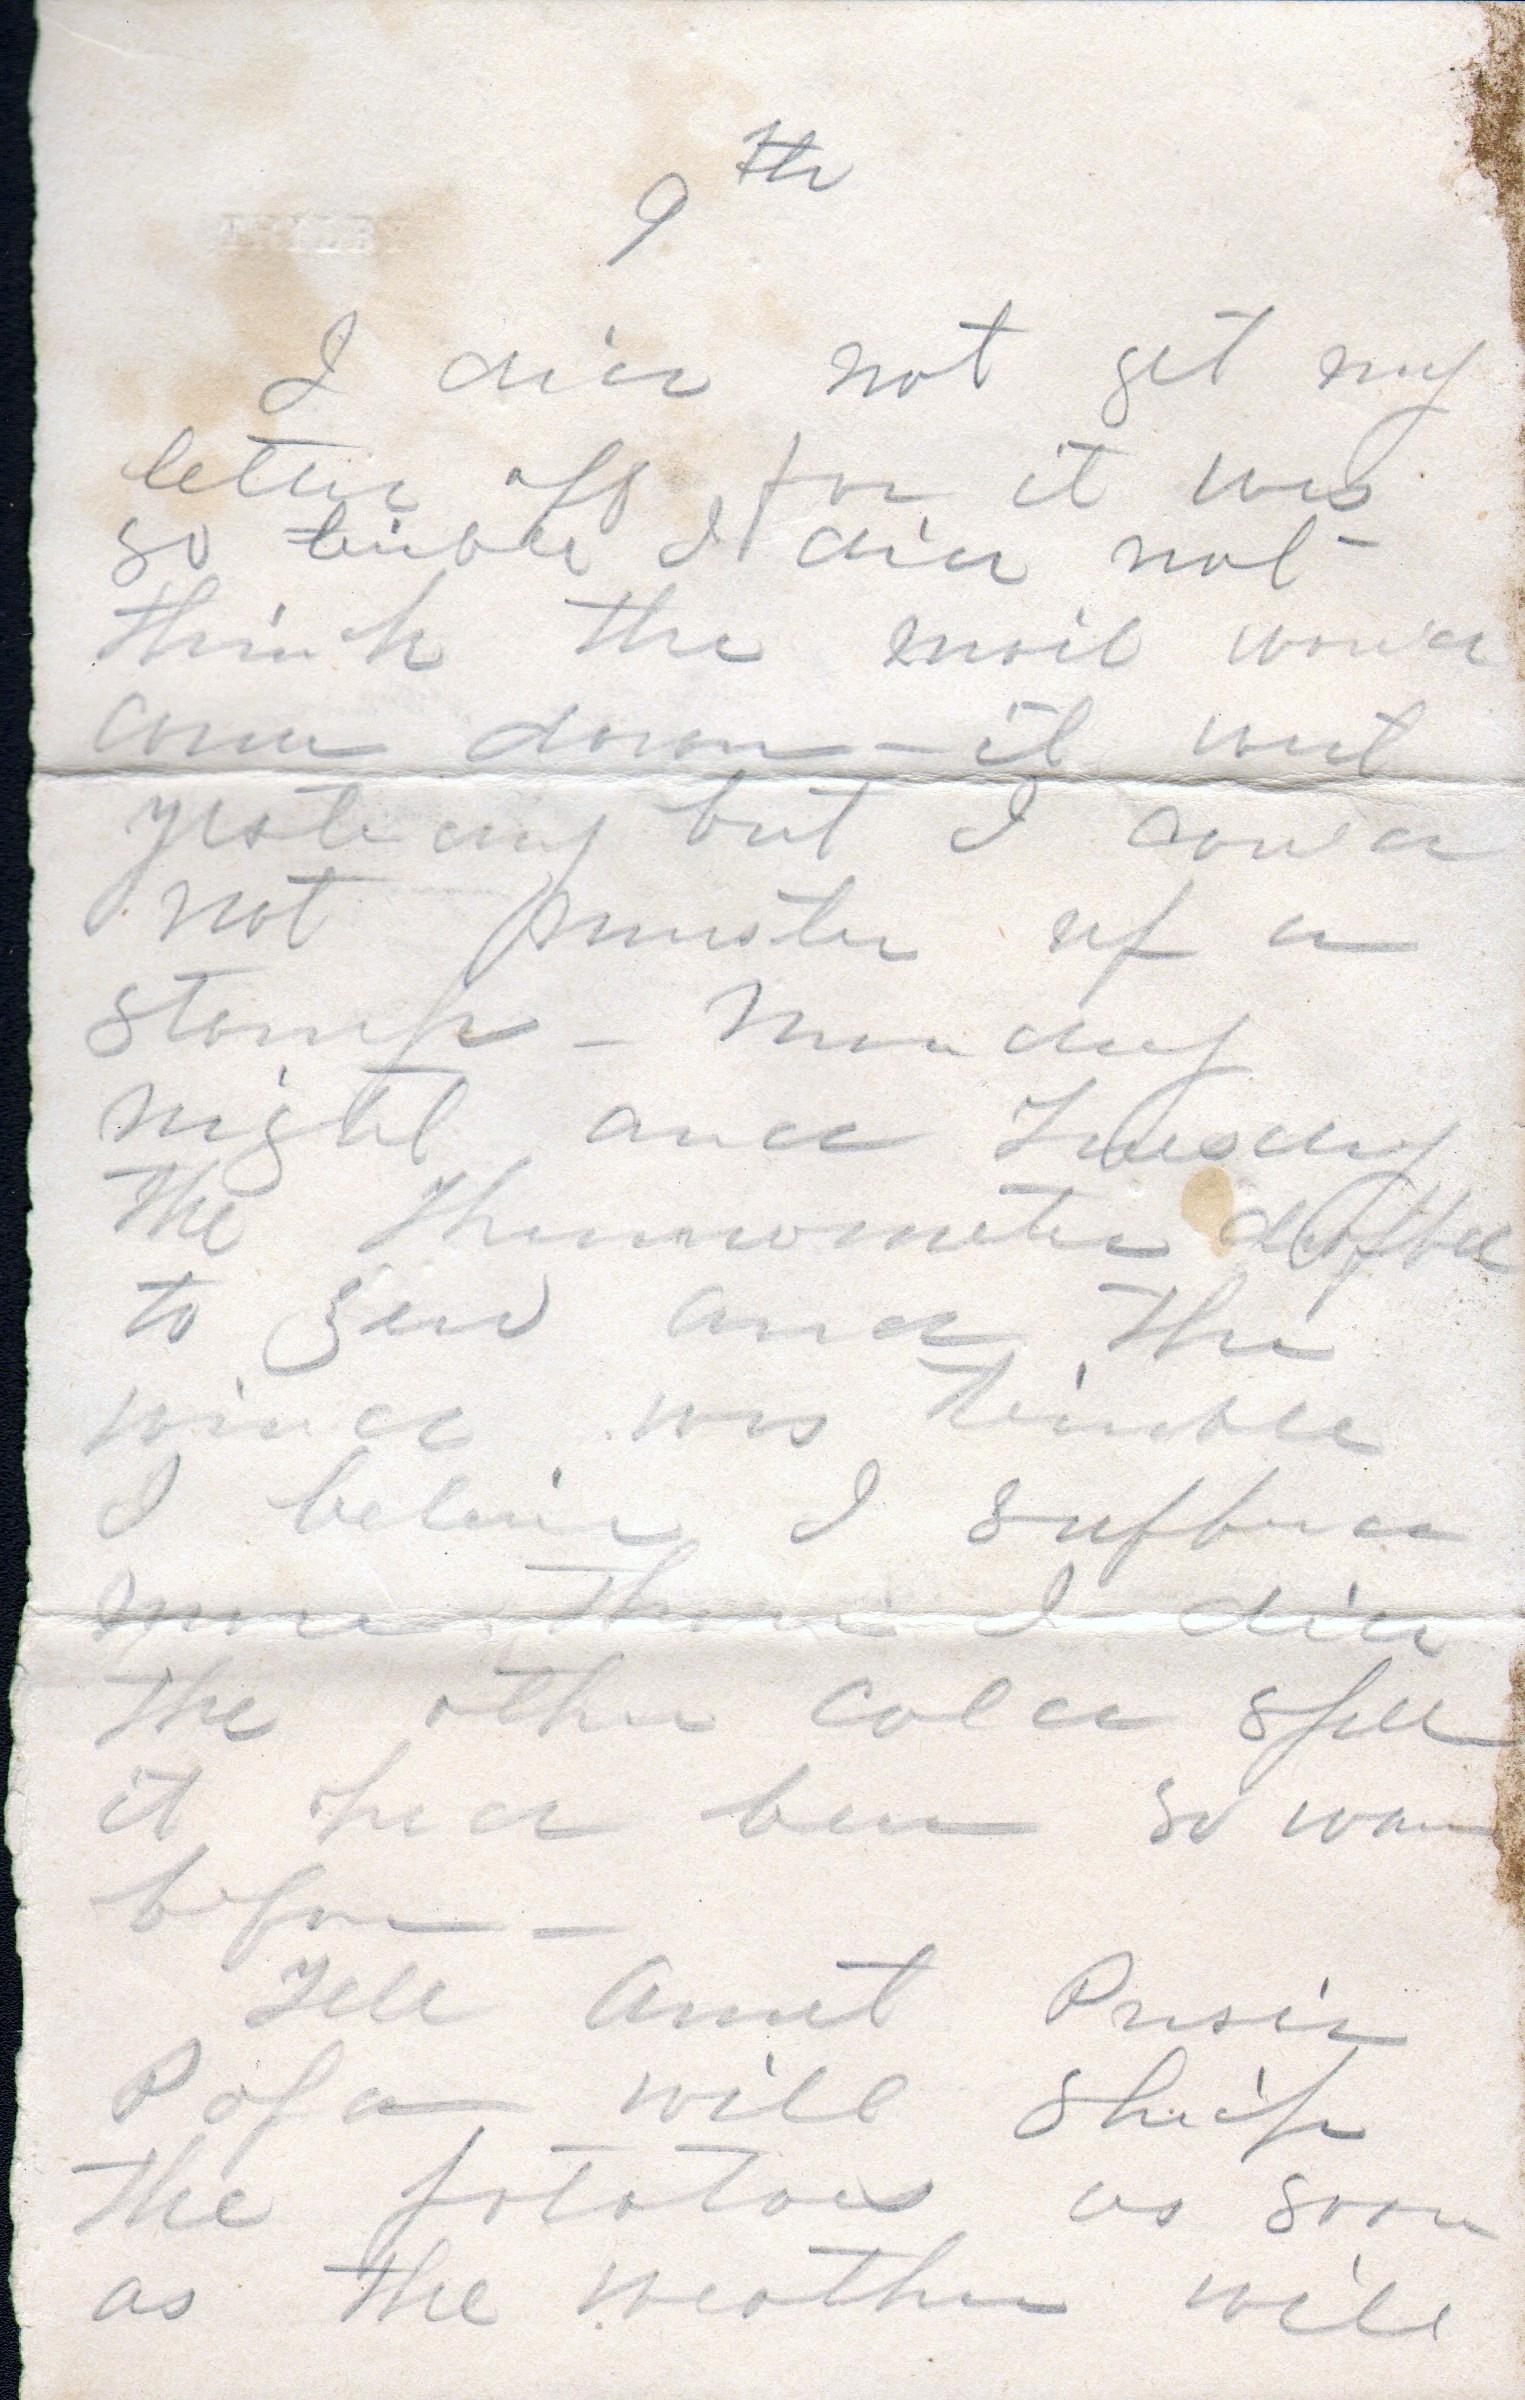 9th
I did not get my
letter off for it was
so terrible I did not
think the mail would
come down - it went
yesterday but I could
not muster up a
stamp - Monday
night and Tuesday
the thermometer dropped
to zero and the
wind was terrible
I believe I suffered
more than I did
the other cold spell
it had been so warm
before -
Tell Aunt Prusie
Popa will ship
the potatoes as soon
as the weather will